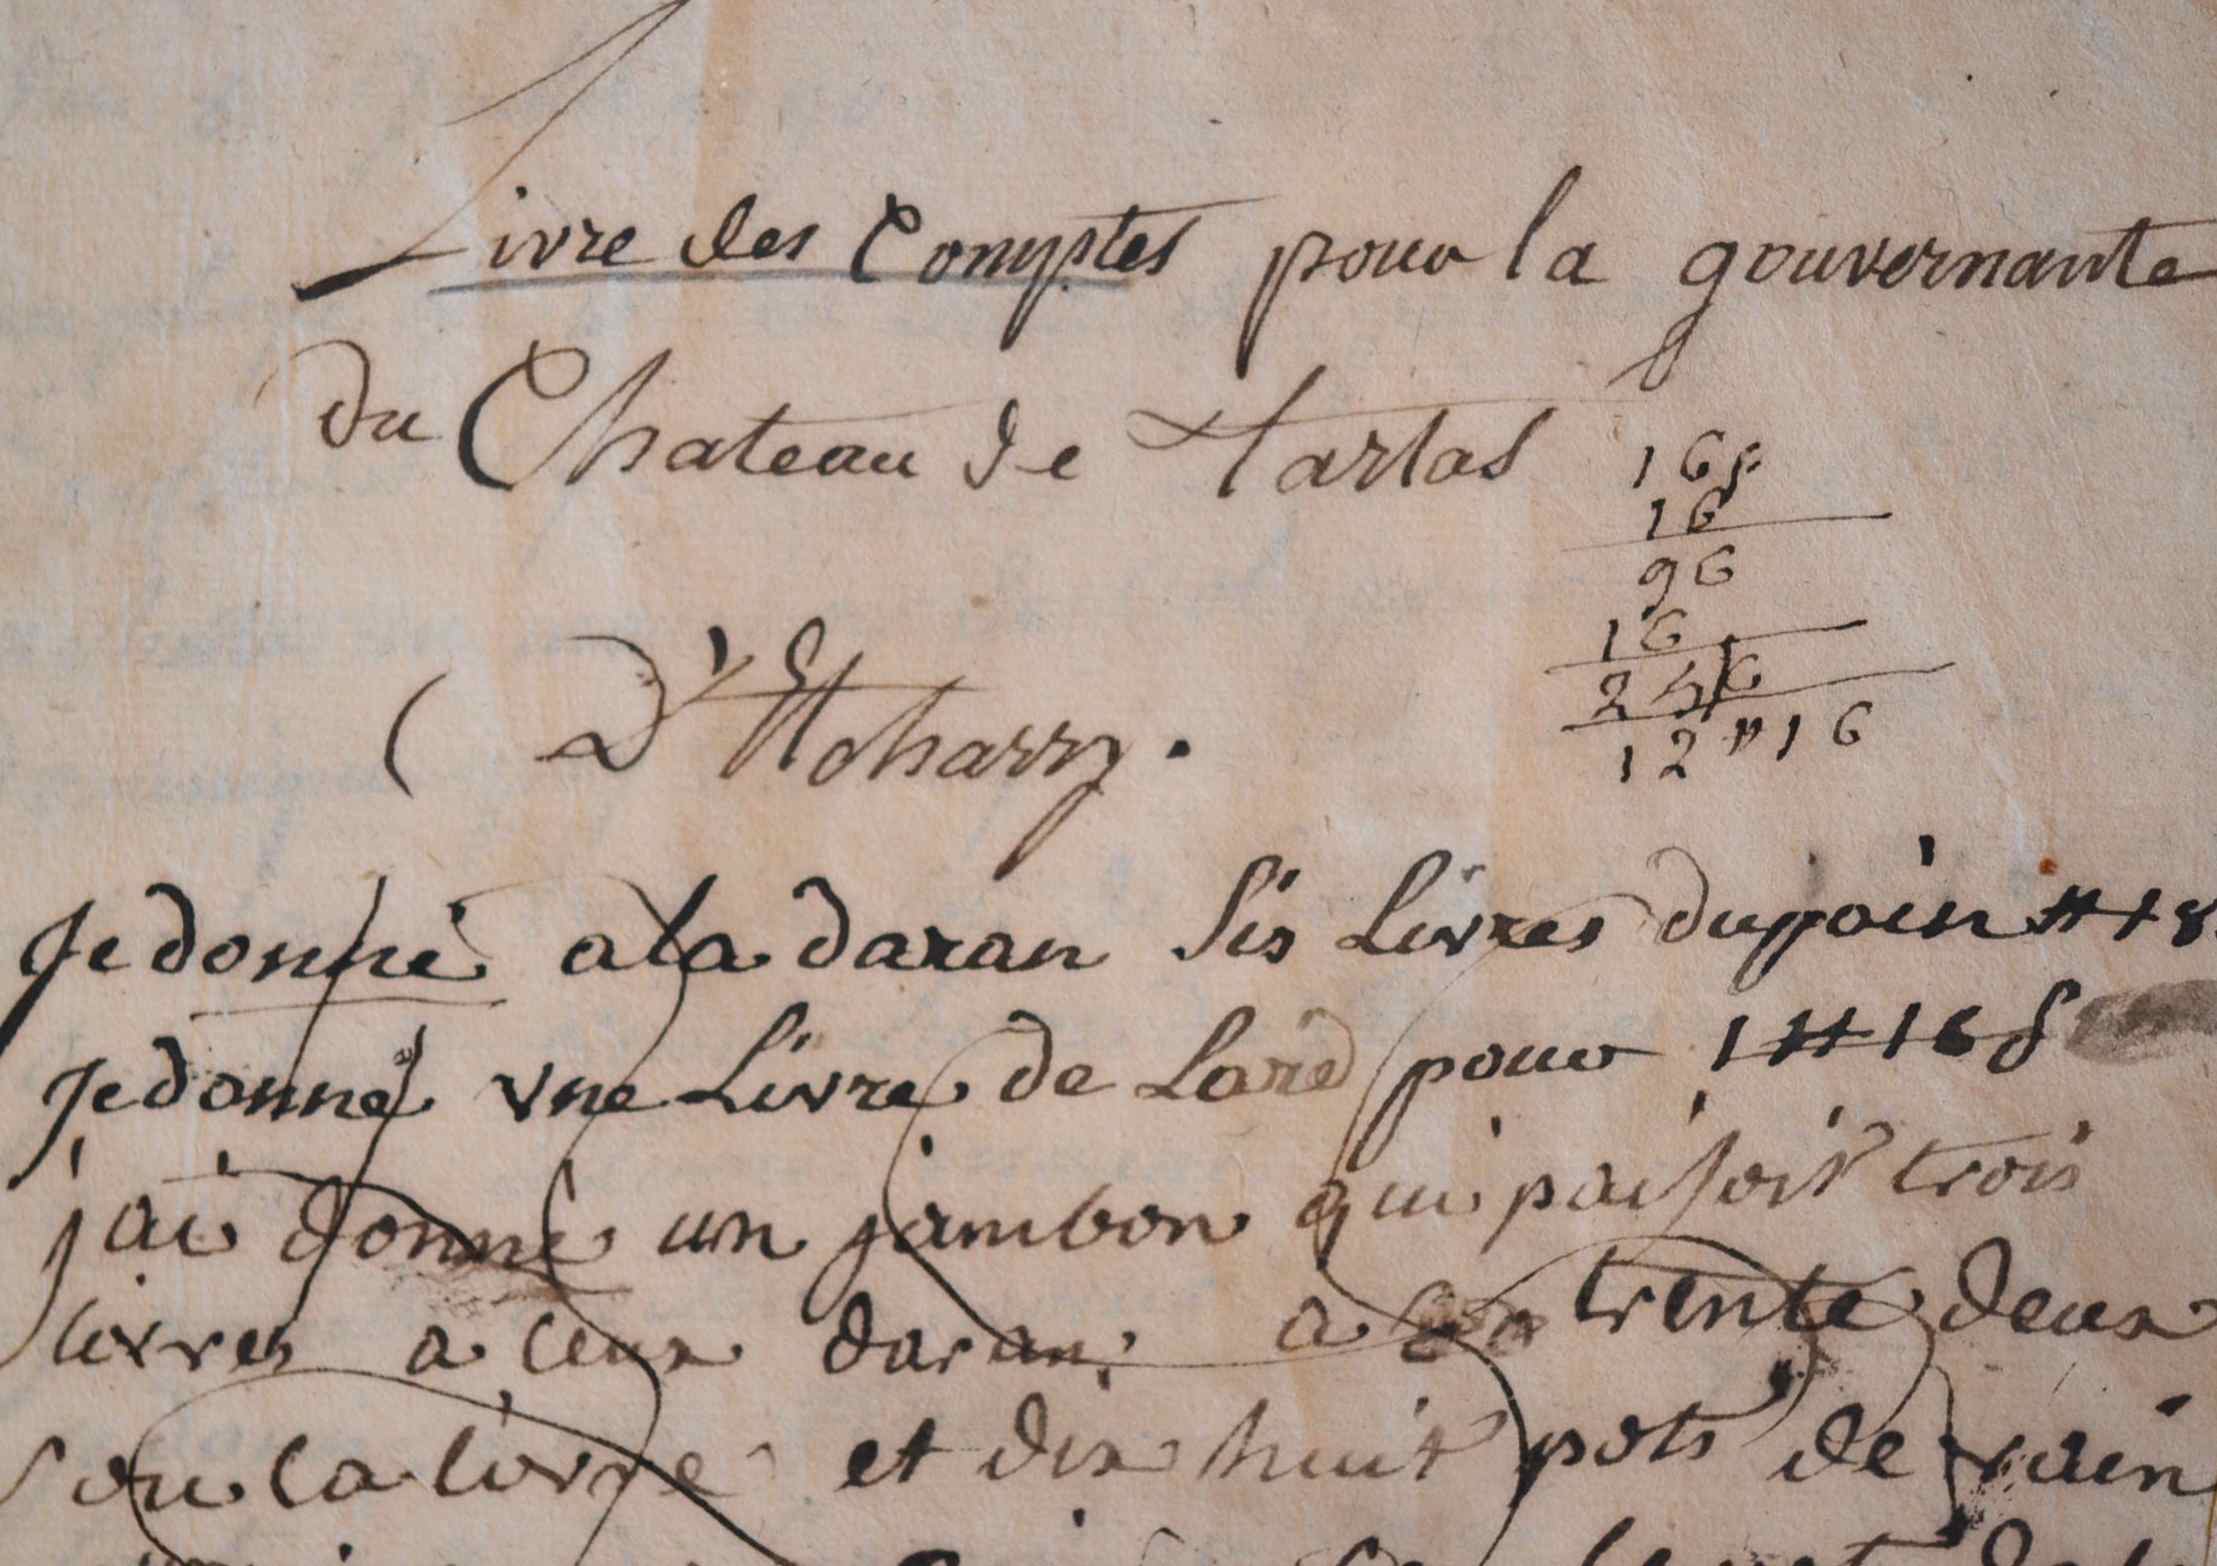 Livre des Comptes pour la gouvernante
du Chateau de tartas
16 s
16
96
16
256
12 " 16
( D'Etcharry.
Je donné a la daran sis Livres du pain ₶ 18
Je donné vne Livre de Lard pour 1 ₶ 16 s
j'ai donné un jambon qui paisoit trois
livres a ceux daran, a trente deux
sou la livre et dix huit pots de vain